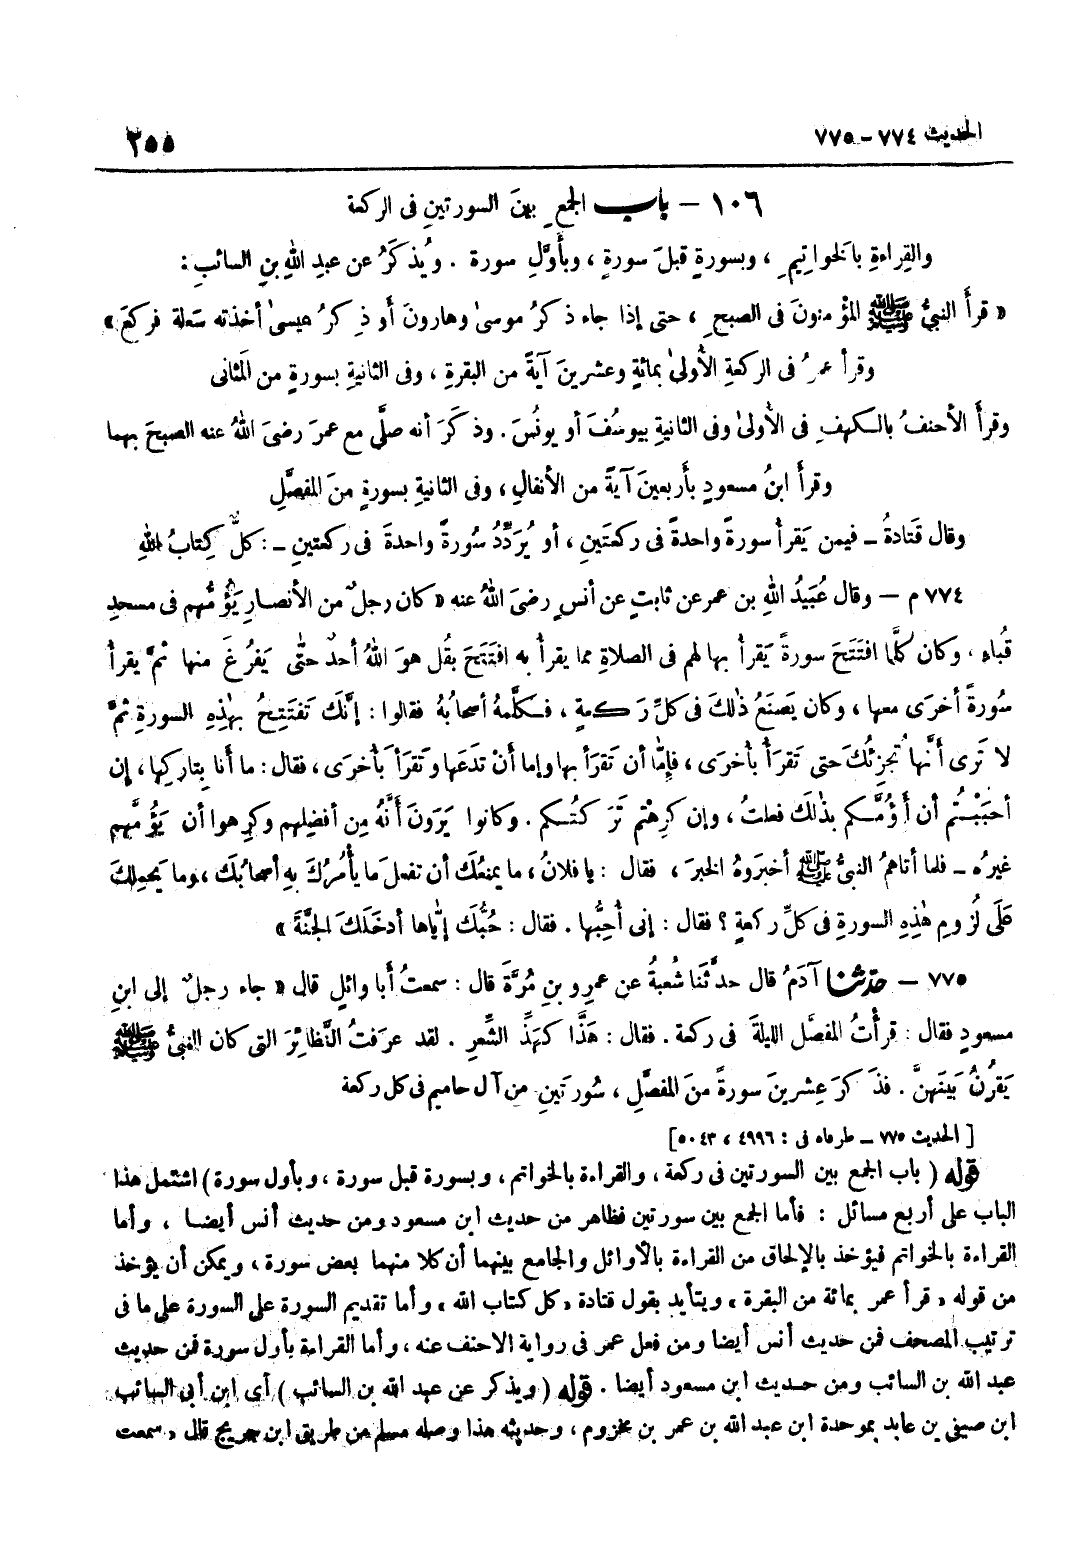 الحديث ٧٧٤ – ٧٧٥
٢٥٥
١٠٦ – باب الجمعِ بينَ السورتينِ فى الركعة
والقِراءةِ بالخواتيمِ ، وبسورةٍ قبلَ سورةٍ ، وبأوَّلِ سورة . ويُذكَرُ عن عبدِ اللهِ بنِ السائبِ :
« قرأَ النبىُّ ﷺ المؤمنونَ فى الصبحِ ، حتى إذا جاء ذكرُ موسىٰ وهارونَ أو ذِكرُ عيسىٰ أخذته سَعلة فركعَ »
وقرأ عمرُ فى الركعةِ الأُولىٰ بمائةٍ وعشرينَ آيةً من البقرةِ ، وفى الثانيةِ بسورةٍ من المَثانى
وقرأَ الأحنفُ بالكهفِ فى الأُولىٰ وفى الثانيةِ بيوسُفَ أو يونُسَ . وذكَرَ أنه صلَّى مع عمرَ رضىَ اللهُ عنه الصبحَ بهما
وقرأَ ابنُ مسعودٍ بأَربعينَ آيَةً من الأنفالِ ، وفى الثانيةِ بسورةٍ منَ المفصَّلِ
وقال قَتادةُ – فيمن يَقرأُ سورةً واحدةً فى ركعتَينِ ، أو يُرَدِّدُ سُورةً واحدةَ فى ركعتينِ – : كلٌّ كِتابُ اللهِ
٧٧٤ م – وقال عُبَيدُ اللهِ بن عمر عن ثابتٍ عن أنسٍ رضىَ اللهُ عنه « كان رجلٌ من الأنصارِ يَؤُمُّهم فى مسجدِ
قُباءٍ ، وكان كلَّما افتَتَحَ سورةً يَقرأُ بها لهم فى الصلاةِ مما يقرأُ به افتَتَحَ بقُل هوَ اللهُ أحدٌ حتَّى يَفرُغَ منها ثمَّ يقرأُ
سُورةً أخرَى معها ، وكان يَصنَعُ ذٰلكَ فى كلِّ رَكعةٍ ، فكلَّمهُ أصحابُهُ فقالوا : إنَّكَ تَفتَتِحُ بهٰذِهِ السورةِ ثمَّ
لا تَرى أنَّها تُجزِئُكَ حتى تَقرَأَ بأُخرَى ، فإِمَّا أن تَقرَأَ بها وإما أنْ تَدَعَها وتَقرَأَ بأُخرَى ، فقال : ما أنا بِتاركِها ، إن
أحبَبْتُم أن أؤُمَّكم بذٰلكَ فعلتُ ، وإن كرِهتُم تَرَكتُكم . وكانوا يَرَونَ أنَّهُ مِن أفضلِهم وكرِهوا أن يَؤُمَّهم
غيرُه – فلما أتاهمُ النبىُّ ﷺ أخبَروهُ الخبرَ ، فقال : يا فلانُ ، ما يمنعُكَ أن تفعلَ ما يأْمُرُكَ بهِ أصحابُكَ ، وما يَحمِلكَ
عَلَى لُزومِ هٰذِهِ السورةِ فى كلِّ ركعةٍ ؟ فقال : إنى أُحِبُّها . فقال : حُبُّكَ إيَّاها أدخَلَكَ الجنَّةَ »
٧٧٥ – حدّثنا آدَمُ قال حدَّثَنا شُعبةُ عن عمرِو بنِ مُرَّةَ قال : سمعتُ أبا وائلٍ قال « جاء رجلٌ إلى ابنِ
مسعودٍ فقال : قرأْتُ المفصَّل الليلةَ فى ركعة . فقال : هَذًّا كهَذِّ الشِّعرِ . لقد عرَفتُ النَّظائرَ التى كان النبىُّ ﷺ
يَقرُنُ بَينَهنَّ . فذَكرَ عِشرينَ سورةً منَ المفصَّلِ ، سُورتَينِ من آل حاميم فى كل ركعة
[ الحديث ٧٧٥ – طرفاه فى : ٤٩٩٦ ، ٥٠٤٣ ]
قوله ( باب الجمع بين السورتين فى ركعة ، والقراءة بالخواتم ، وبسورة قبل سورة ، وبأول سورة ) اشتمل هذا
الباب على أربع مسائل : فأما الجمع بين سورتين فظاهر من حديث ابن مسعود ومن حديث أنس أيضا ، وأما
القراءة بالخواتم فيؤخذ بالإلحاق من القراءة بالأوائل والجامع بينهما أن كلا منهما بعض سورة ، ويمكن أن يؤخذ
من قوله « قرأ عمر بمائة من البقرة » ويتأيد بقول قتادة « كل كتاب الله » وأما تقديم السورة على السورة على ما فى
ترتيب المصحف فمن حديث أنس أيضا ومن فعل عمر فى رواية الاحنف عنه ، وأما القراءة بأول سورة فمن حديث
عبد الله بن السائب ومن حديث ابن مسعود أيضا . قوله ( ويذكر عن عبد الله بن السائب ) أى ابن أبى السائب
ابن صيفى بن عابد بموحدة ابن عبد الله بن عمر بن مخزوم ، وحديثه هذا وصله مسلم من طريق ابن جريج قال « سمعت